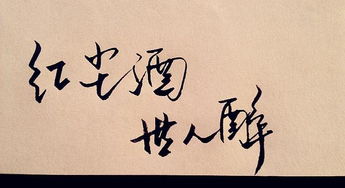 红尘酒
世人醉